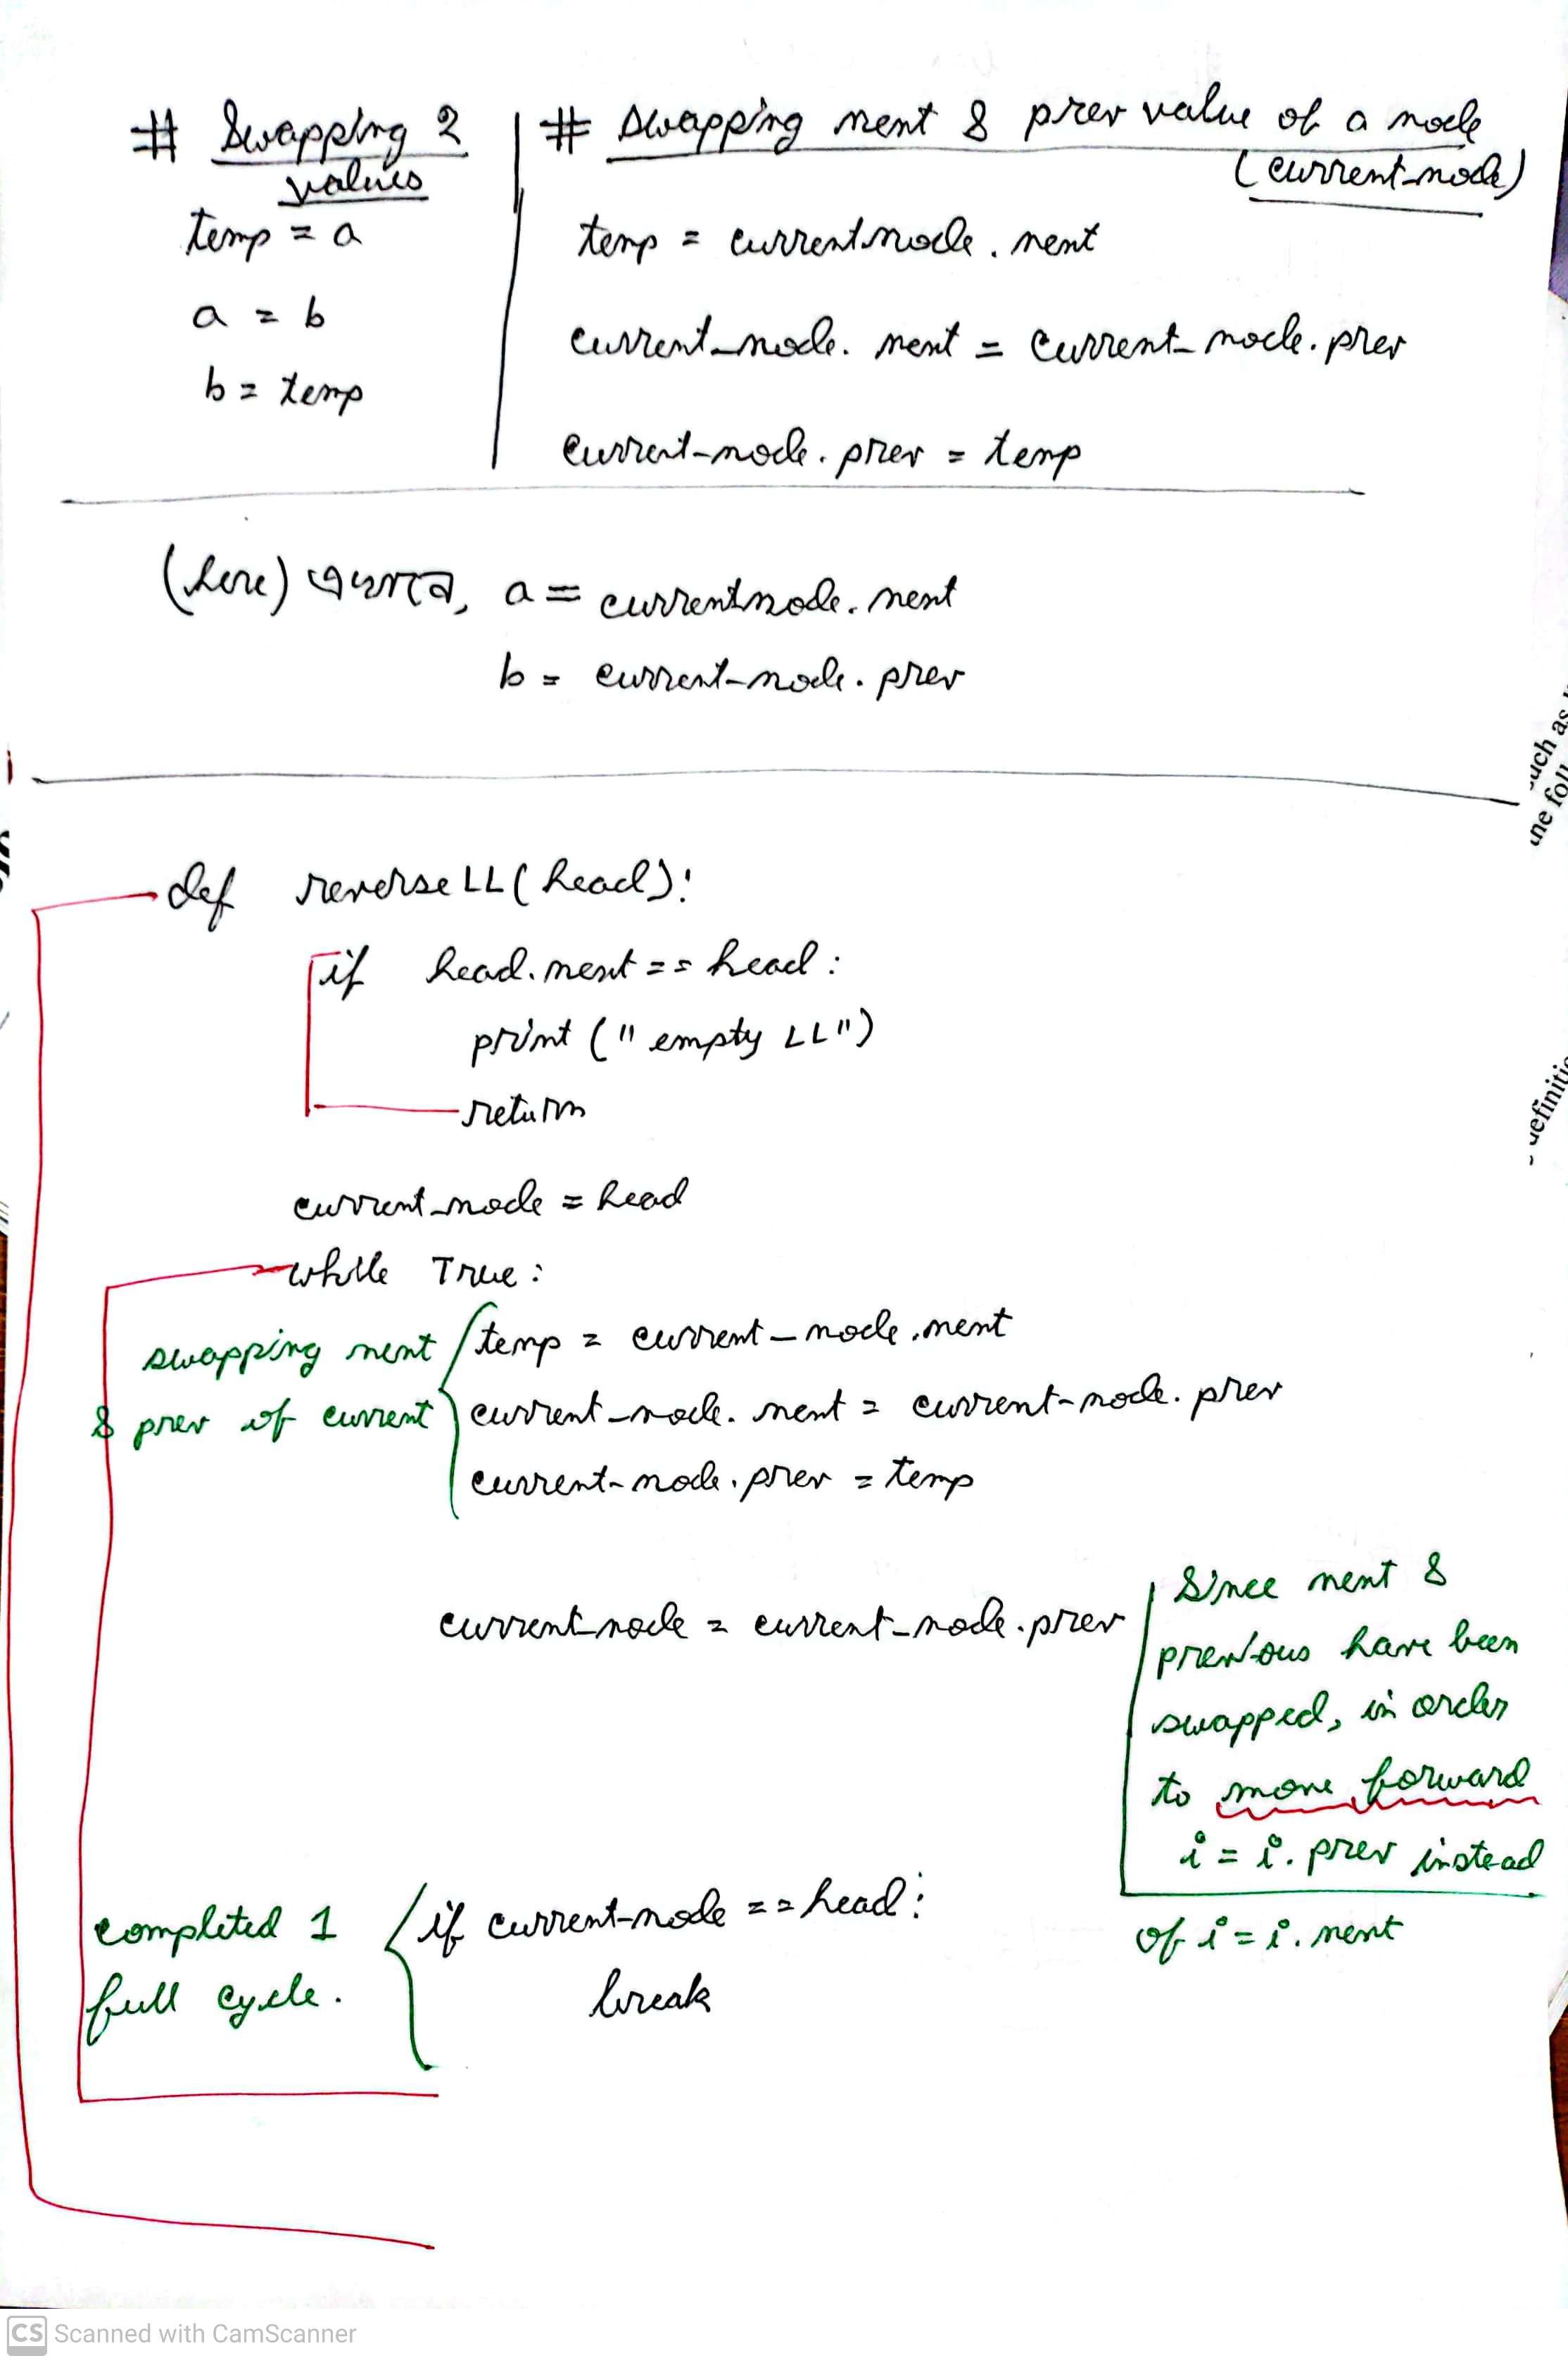 # Swapping 2
values
temp = a
a = b
b = temp
# swapping next & prev value of a node
(current_node)
temp = current_node.next
current_node.next = current_node.prev
current_node.prev = temp
(here) এখানে, a = current_node.next
b = current_node.prev
def reverseLL(head):
if head.next == head:
print("empty LL")
return
current_node = head
while True:
swapping next
& prev of current
temp = current_node.next
current_node.next = current_node.prev
current_node.prev = temp
current_node = current_node.prev
Since next &
previous have been
swapped, in order
to move forward
i = i.prev instead
of i = i.next
completed 1
full cycle.
if current_node == head:
break
such as
the foll
definitio
CS Scanned with CamScanner